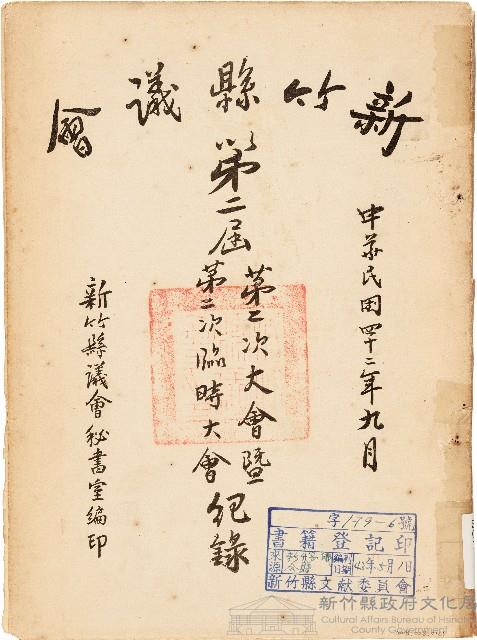 新竹縣議會
中華民國四十二年九月
第二屆
第二次大會暨
第二次臨時大會
紀錄
新竹縣議會秘書室編印
字179-6號
書籍登記印
來源
日期 43年5月1日
新竹縣文獻委員會
新竹縣政府文化局
Cultural Affairs Bureau of Hsinchu
County Government